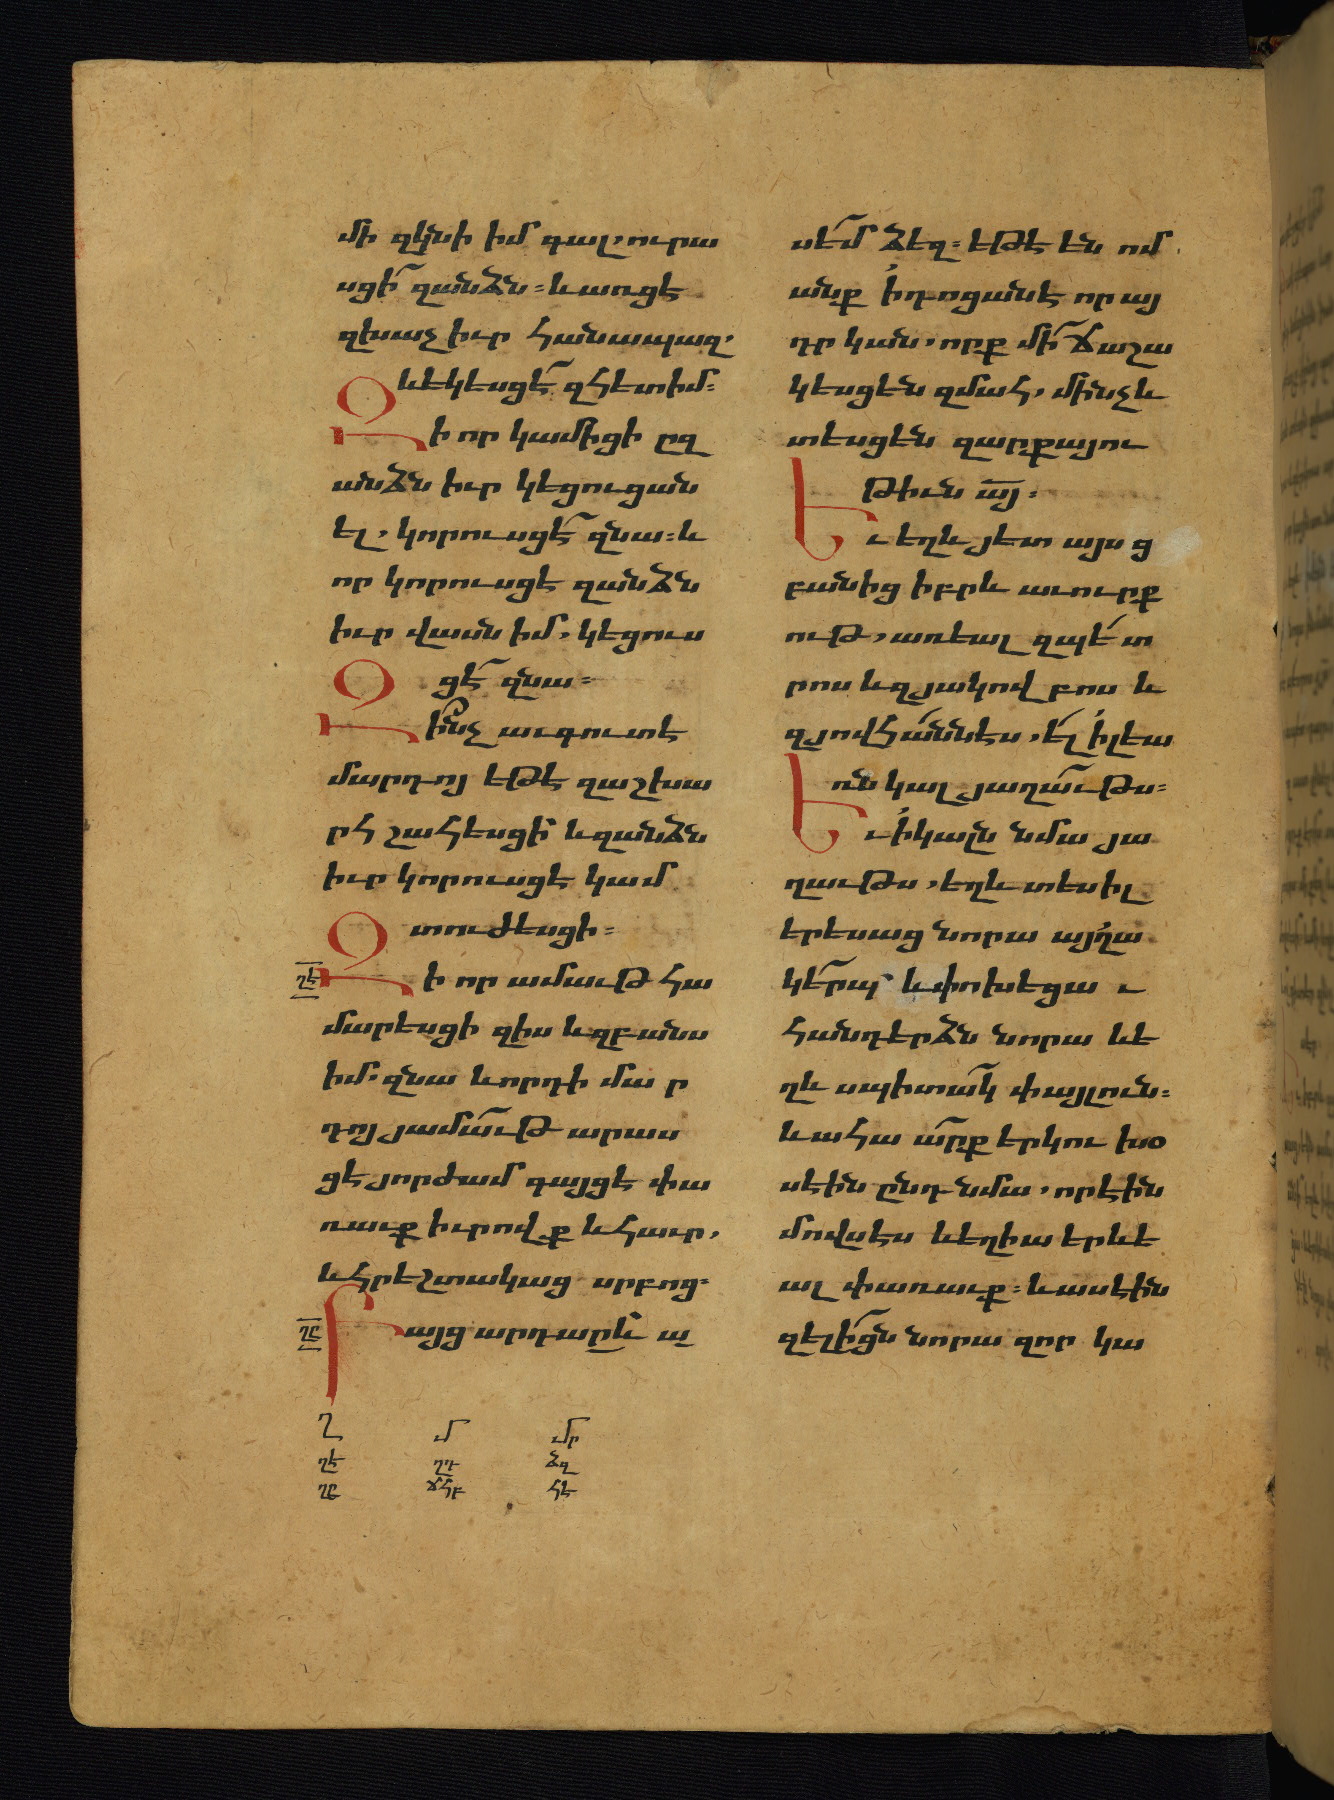 մի զկնի իմ գալ, ուրա
սցի զանձն։ և առցէ
զխաչ իւր հանապազ,
և եկեսցէ զհետ իմ։
Զի որ կամիցի ըզ
անձն իւր կեցուցան
ել, կորուսցէ զնա։ և
որ կորուսցէ զանձն
իւր վասն իմ, կեցուս
ցէ զնա։
Զինչ աւգուտ է
մարդոյ եթէ զաշխա
րհ շահեսցի և զանձն
իւր կորուսցէ կամ
տուժեսցի։
ՂԷ Զի որ ամաւթ հա
մարեսցի զիս և զբանս
իմ. զնա և որդի մար
դոյ յամաւթ արաս
ցէ յորժամ գայցէ փա
ռաւք իւրովք և հաւր,
և հրեշտակաց սրբոց։
ՂԸ Բայց արդարև ա
Ղ Մ Մր
ղէ ղդ ձզ
ղը ճհբ հէ
սեմ ձեզ։ եթէ են ոմ
անք ի դոցանէ որ այ
դր կան, որք մի ճաշա
կեսցեն զմահ, մինչև
տեսցեն զարքայու
թիւն այ։
Եւ եղև յետ այսց
բանից իբրև աւուրք
ութ, առեալ զպետ
րոս և զյակովբոս և
զյովհաննէս, ել ի լեա
ռն կալ յաղաւթս։
Եւ ի կալն նմա յա
ղաւթս, եղև տեսիլ
երեսաց նորա այլա
կերպ և փոխեցաւ
հանդերձն նորա և ե
ղև սպիտակ փայլուն։
և ահա արք երկու խօ
սէին ընդ նմա, որ էին
մովսէս և եղիա երևե
ալ փառաւք։ և ասէին
զելիցն նորա զոր կա